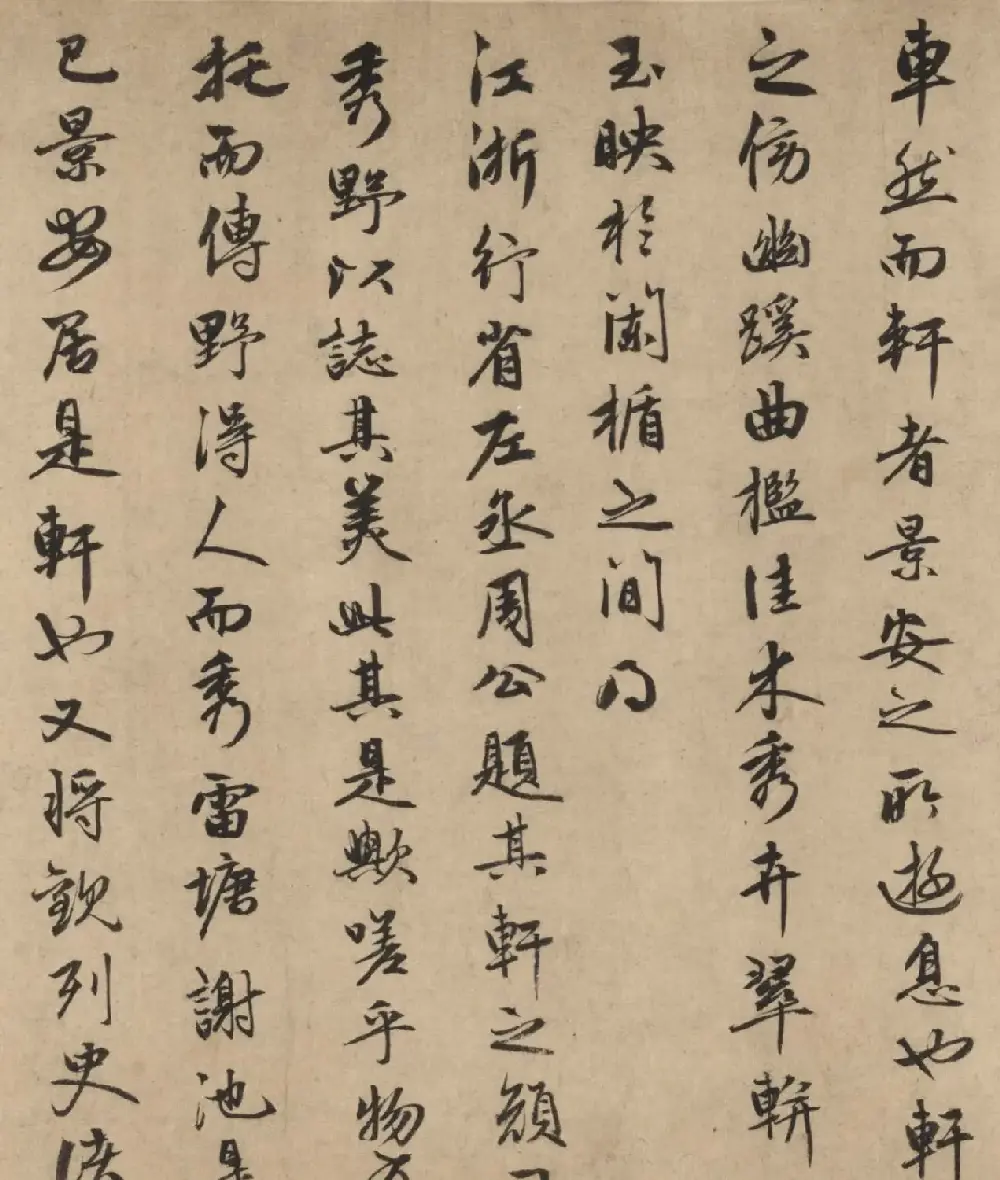 車然而軒者景安之所遊息也軒
之傍幽蹊曲檻佳木秀卉翠輧
玉映於闌楯之間乃
江浙行省左丞周公題其軒之顏
秀野以誌其美此其是歟嗟乎物
托而傳野得人而秀雷塘謝池
已景安居是軒也又將觀列史